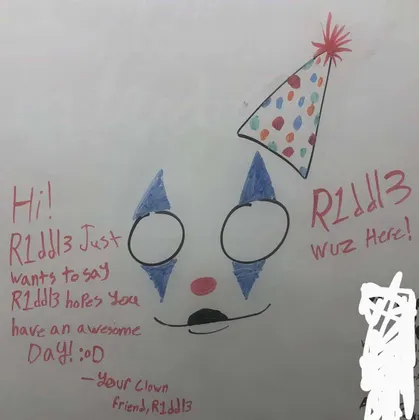 Hi!
R1ddl3 Just
wants to say
R1ddl3 hopes you
have an awesome
DAY! :oD
—Your Clown
friend, R1ddl3
R1ddl3
wuz Here!